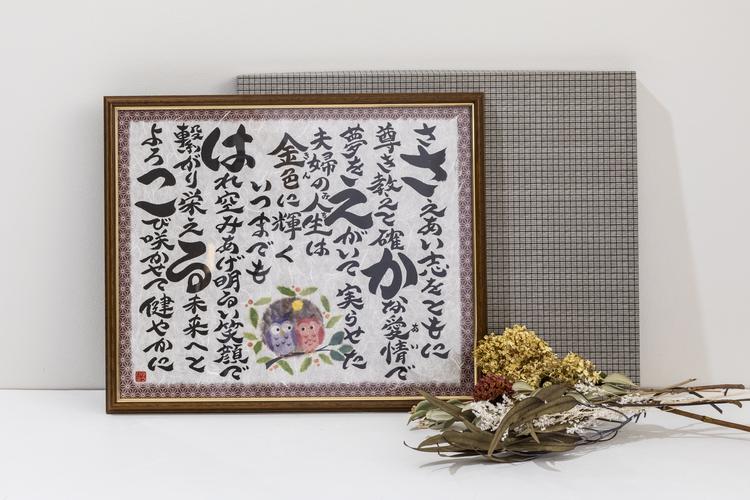 ささえあい志をともに
尊き教えて確かな愛情で
夢をえがいて実らせた
夫婦の人生は
金色に輝く
いつまでも
はれ空みあげ明るい笑顔で
繋がり栄える未来へと
よろこび咲かせて健やかに